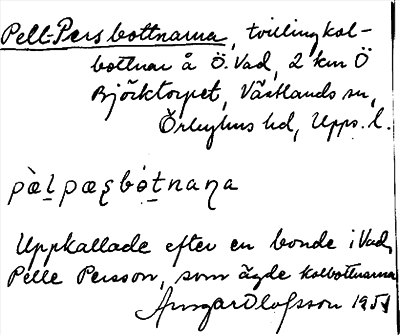 Pell-Persbottnarna, tvillingkol-
bottnar å Ö. Vad, 2 km Ö
Björktorpet, Västlands sn,
Örbyhus hd, Upps. l.
pæ̀l̠pæʂbót̠naɳa
Uppkallade efter en bonde i Vad,
Pelle Persson, som ägde kolbottnarna
Ansgar Olofsson 1951